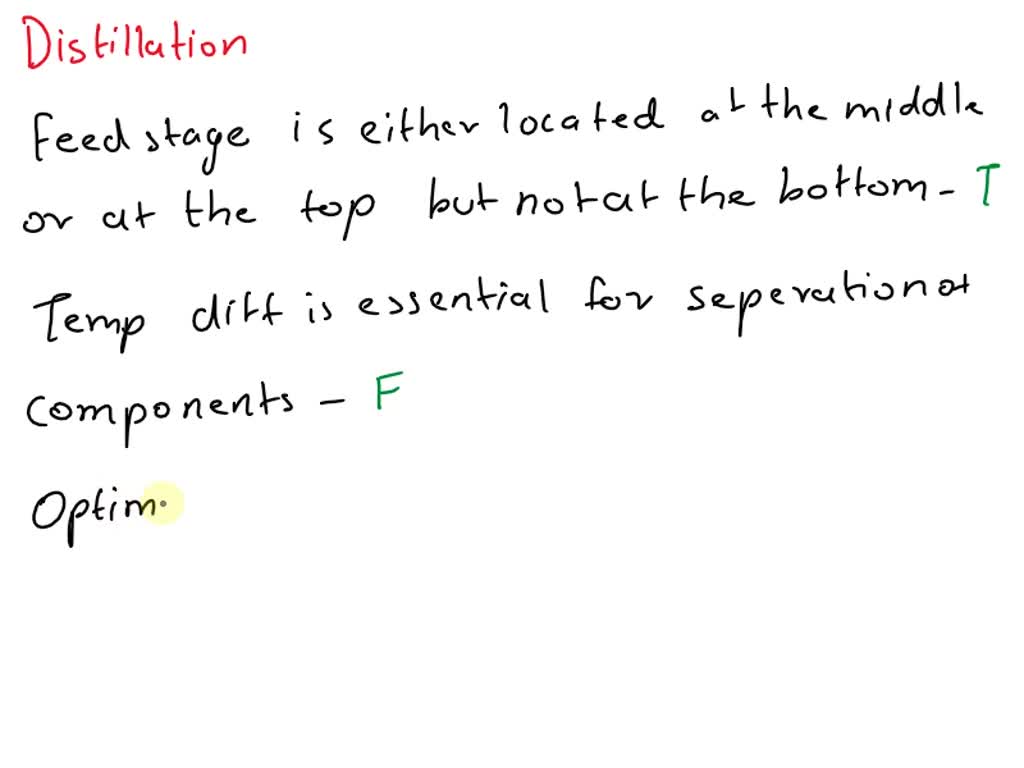 Distillation
Feed stage is either located at the middle
or at the top but not at the bottom - T
Temp diff is essential for seperation of
components - F
Optim